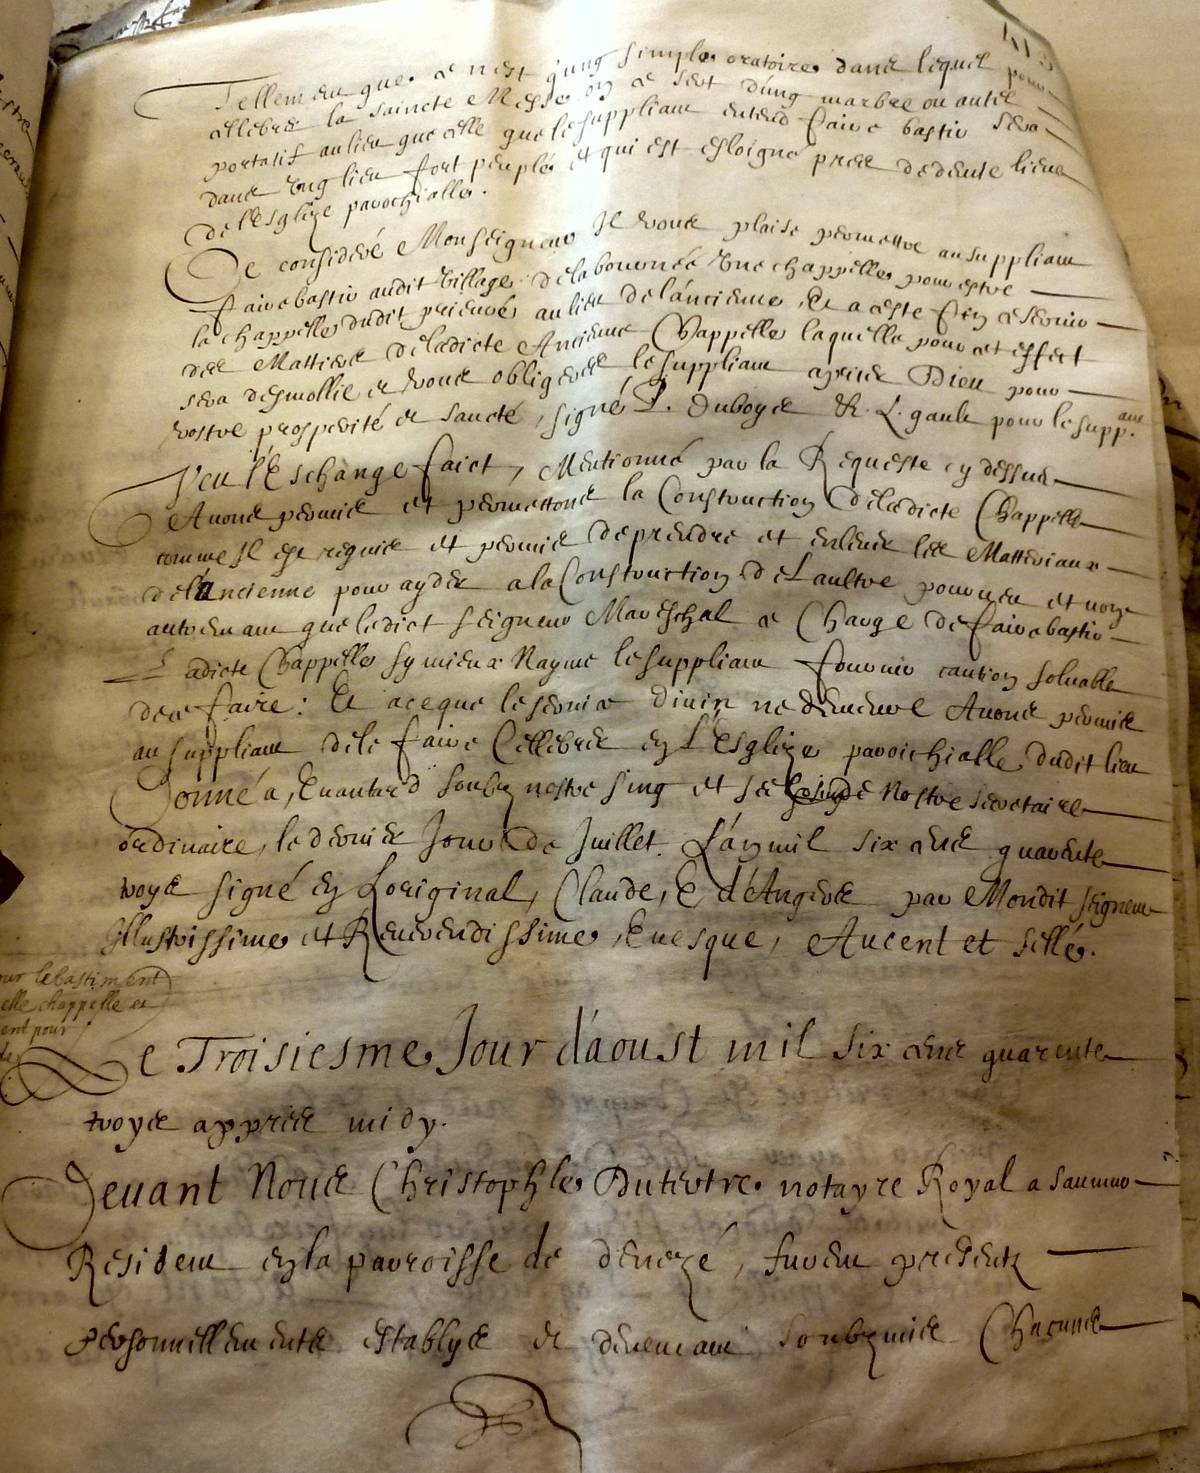 413
Tellem en que ce n'est qu'ung simple oratoire dans lequel pour
cellebrer la saincte Messe on ce sert d'ung marbre ou autel
portatif au lieu que celle que le suppliant entend faire bastir sera
dans ung lieu fort peuplé et qui est esloigné prez de deute lieue
de l'Esglize parochialle.
Ce considéré Monseigneur Il vous plaise permettre au suppliant
faire bastir audit village de la bournée une chappelle pour estre
la chappelle dudit prieuré au lieu de l'ancienne, Et a ceste fin ce servir
des Mattieres de ladicte Ancienne Chappelle laquelle pour cet effect
sera desmollie et vous obligerez le suppliant a prier Dieu pour
vostre prosperité et sancté, signé P. Duboys & L. gault pour le supp.ant
Veu l'Eschange faict, Mentionné par la Requeste cy dessus
Avons permis et permettons la Construction de ladicte Chappelle
comme Il est requis et permis de prendre et enlever les Matteriaux
de l'Ancienne pour ayder a la Construction de L'aultre pourveu et non
autrement que ledict seigneur Mareschal ce Charge de faire bastir
Ladicte Chappelle sy mieux Nayme le suppliant fournir caution solvable
de ce faire: Et a ce que le service divin ne demeure Avons permis
au suppliant de le faire Cellebrer en L'Esglize paroichialle dudit lieu
Donné a, Evantard soubz nostre sing et de Nostre secretaire
ordinaire, le dernier Jour de Juillet. L'an mil six cens quarente
troys signé en Loriginal, Claude, E d'Angers par Mondit seigneur
Illustrissime et Reverendissime, Evesque, Aucent et sellé.
le bastiment
elle chappelle et
ent pour
Le Troisiesme Jour d'aoust mil six cens quarente
troys apprez midy.
Devant Nous Christophle Dutertre notayre Royal a saumur
Resident en la parroisse de denezé, furent presentz
Personnellement establys et devenant soubzmis Chacuns